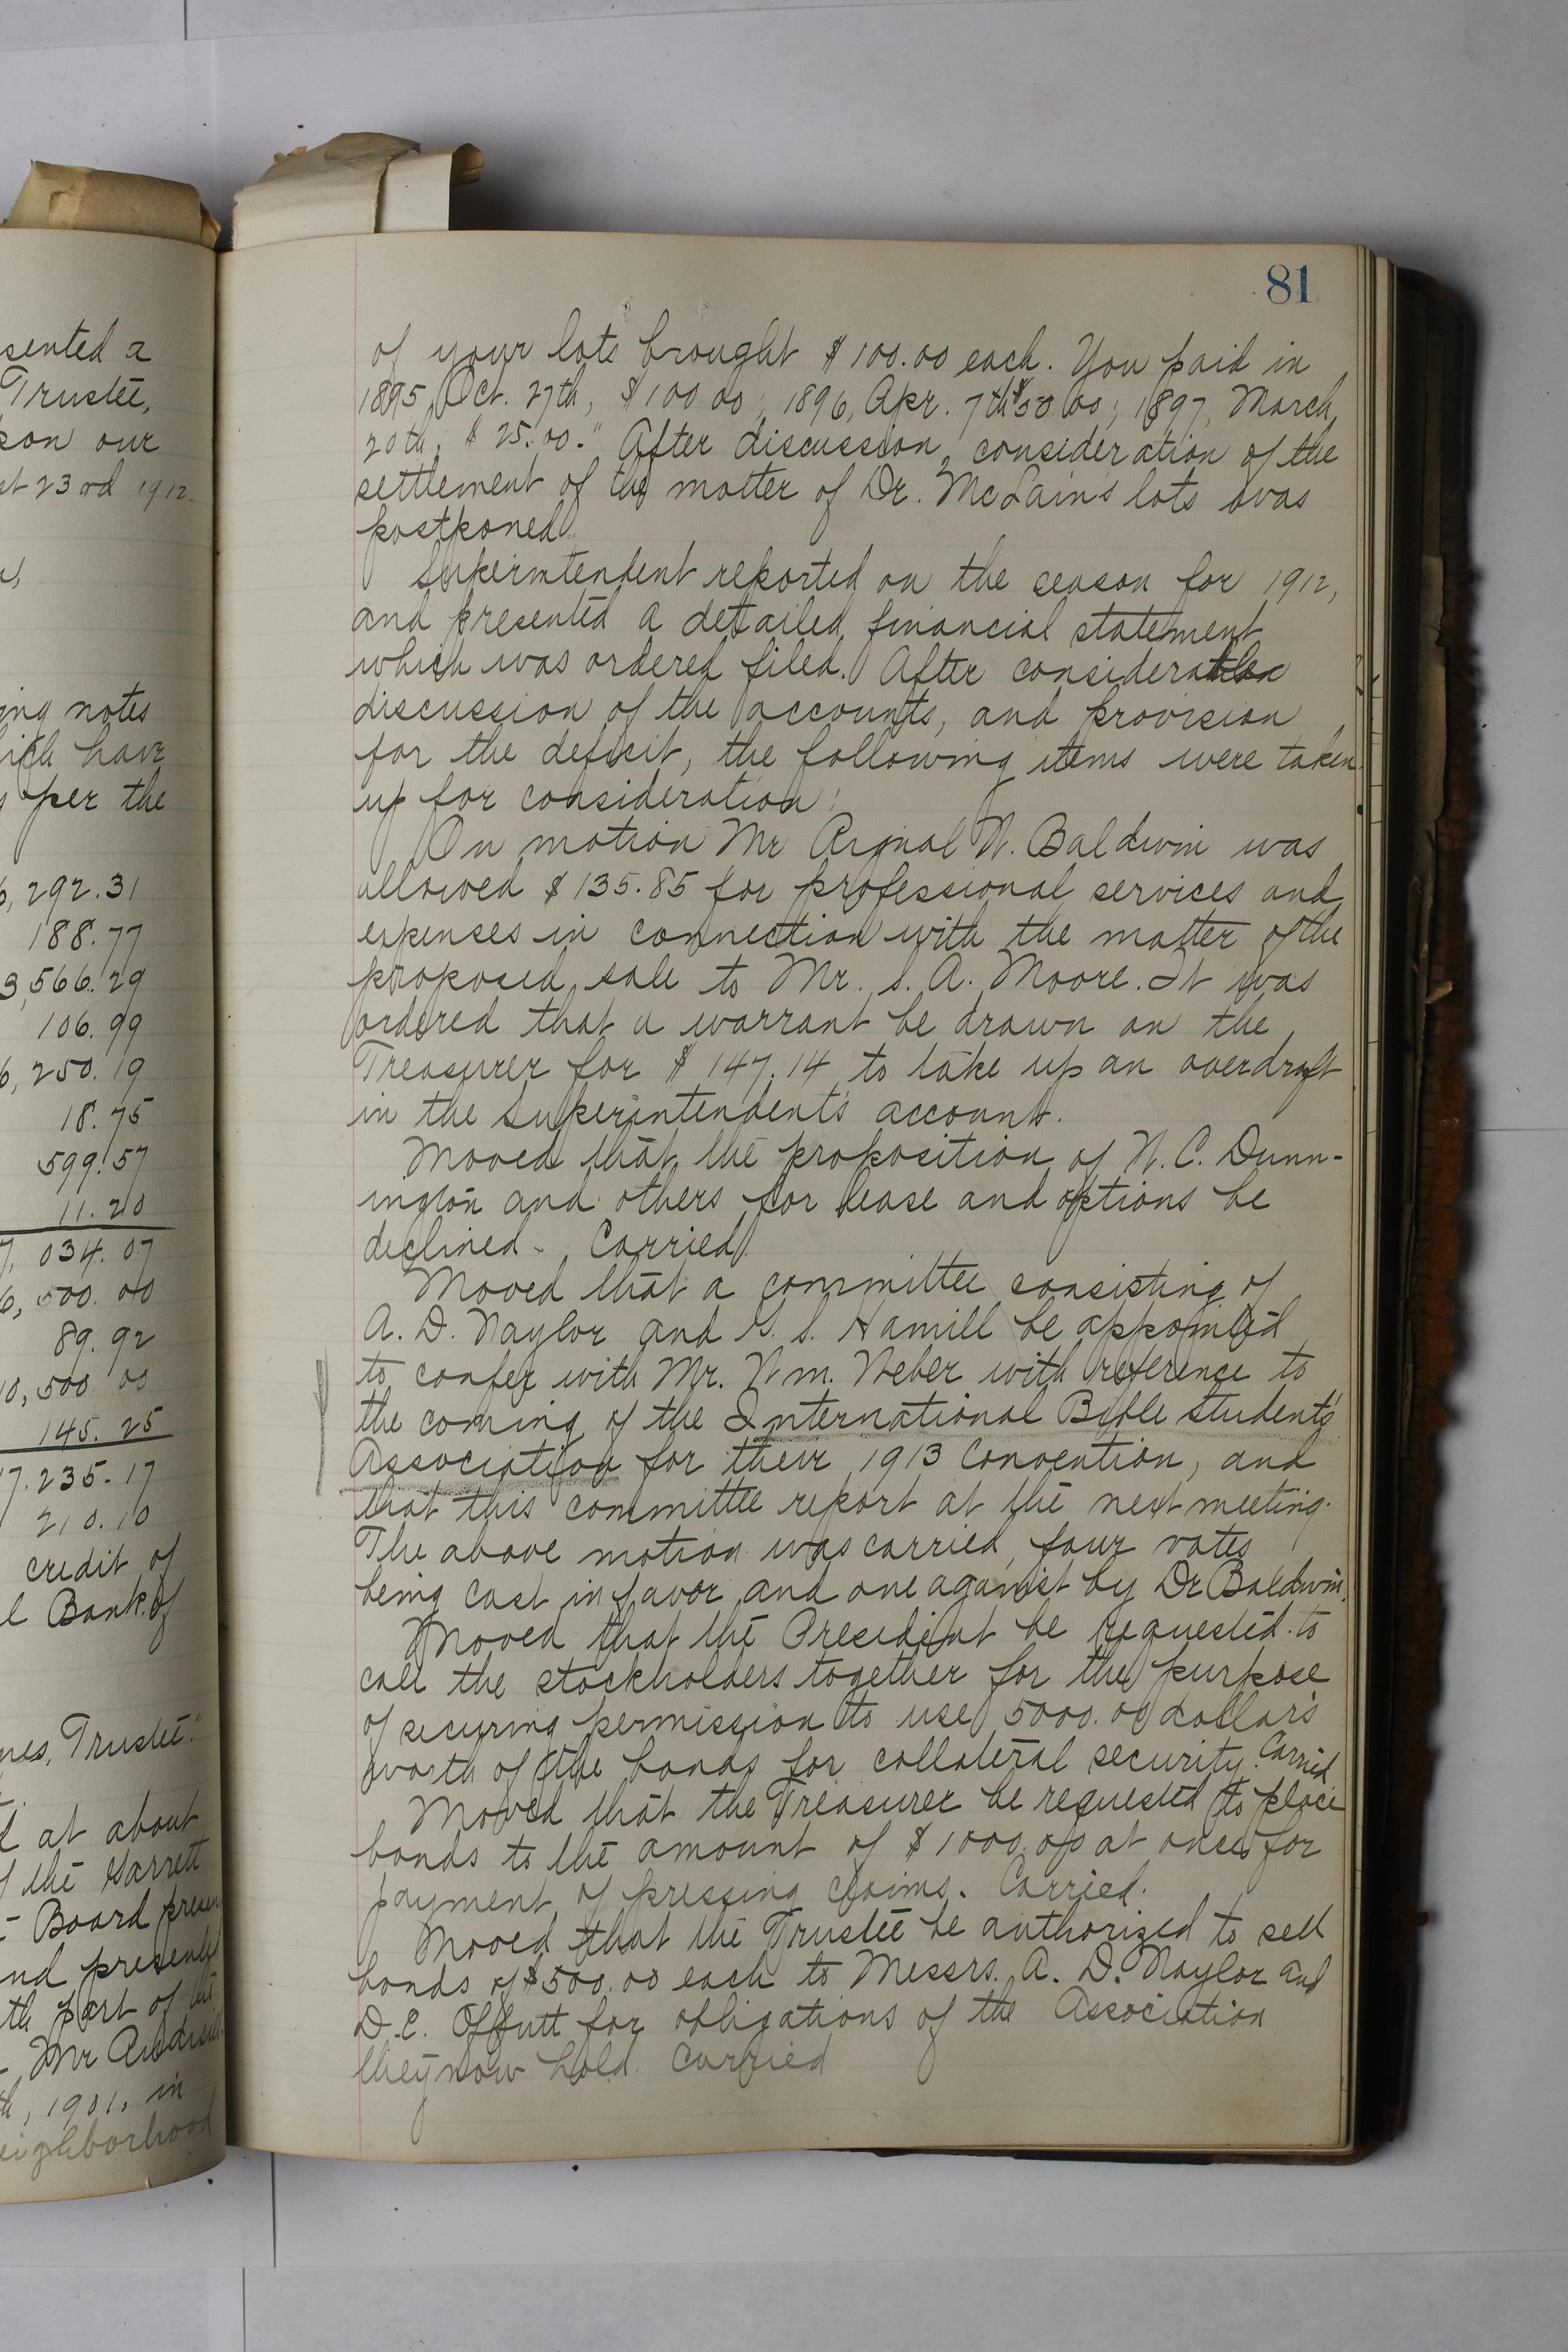 sented a
Trustee,
son our
st 23rd 1912.
ing notes
hich have
per the
6,292.31
188.77
3,566.29
106.99
6,250.19
18.75
599.57
11.20
7,034.07
6,500.00
89.92
10,500 00
145.25
17.235.17
210.10
credit of
l Bank of
nes, Trustee."
d at about
f the Garrett
- Board presen
nd presented
th part of the
- Mr
th, 1901, in
eighborhood
81
of your lots brought $100.00 each. You paid in
1895, Oct. 27th, $100.00; 1896, Apr. 7th $50.00; 1897, March
20th, $25.00." After discussion, consideration of the
settlement of the matter of Dr. McLain's lots was
postponed.
Superintendent reported on the season for 1912,
and presented a detailed financial statement
which was ordered filed. After considerable
discussion of the accounts, and provision
for the deficit, the following items were taken
up for consideration:
On motion Mr Rignal W. Baldwin was
allowed $135.85 for professional services and
expenses in connection with the matter of the
proposed sale to Mr. S. A. Moore. It was
ordered that a warrant be drawn on the
Treasurer for $147.14 to take up an overdraft
in the Superintendent's account.
Moved that the proposition of W. C. Dunn-
ington and others for lease and options be
declined. Carried.
Moved that a committee consisting of
A. D. Naylor and G. S. Hamill be appointed
to confer with Mr. Wm. Weber with reference to
the coming of the International Bible Students'
Association for their 1913 Convention, and
that this committee report at the next meeting.
The above motion was carried, four votes
being cast in favor and one against by Dr Baldwin.
Moved that the President be requested to
call the stockholders together for the purpose
of securing permission to use 5000.00 dollars
worth of the bonds for collateral security. Carried
Moved that the Treasurer be requested to place
bonds to the amount of $1000.00 at once for
payment of pressing claims. Carried.
Moved that the Trustee be authorized to sell
bonds of $500.00 each to Messrs. A. D. Naylor and
D.E. Offutt for obligations of the Association
they now hold. Carried